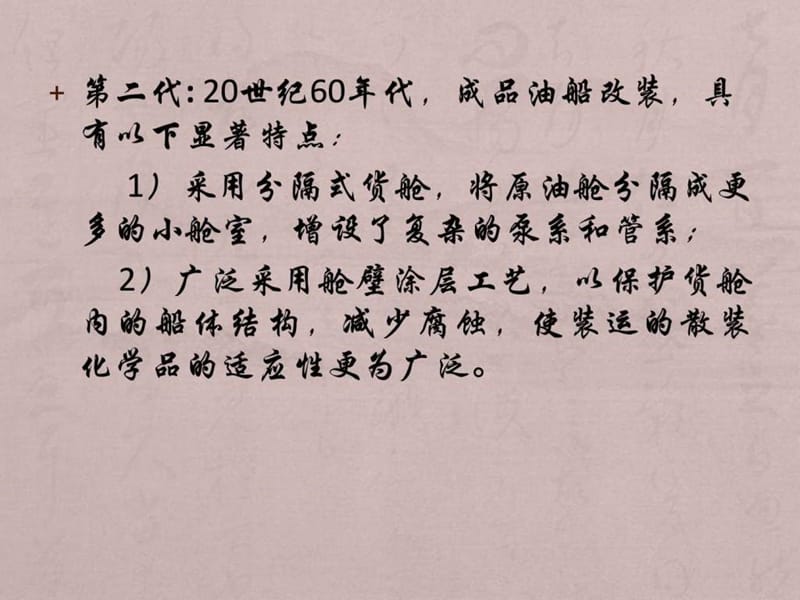 + 第二代: 20世纪60年代，成品油船改装，具
有以下显著特点：
1）采用分隔式货舱，将原油舱分隔成更
多的小舱室，增设了复杂的泵系和管系；
2）广泛采用舱壁涂层工艺，以保护货舱
内的船体结构，减少腐蚀，使装运的散装
化学品的适应性更为广泛。